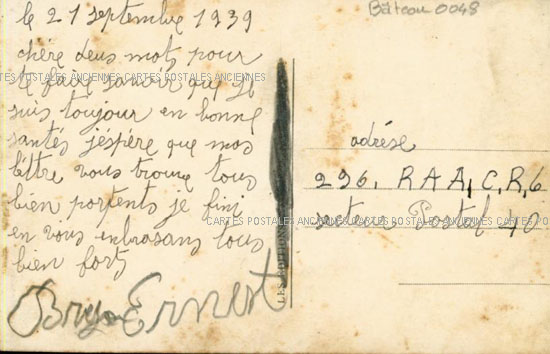 le 21 septembre 1939
chére deus mots pour
te faire savoir que je
suis toujour en bonne
santés j'éspére que mos
léttre vous trouve tous
bien portents je fini
en vous enbrasans tous
bien forts
Ernest
Bâteau 0048
adrése
296, R A A, C, R, 6
secteur Postal 40
CARTES POSTALES ANCIENNES CARTES POSTALES ANCIENNES
CARTES POSTALES ANCIENNES CARTES POSTALES ANCIENNES